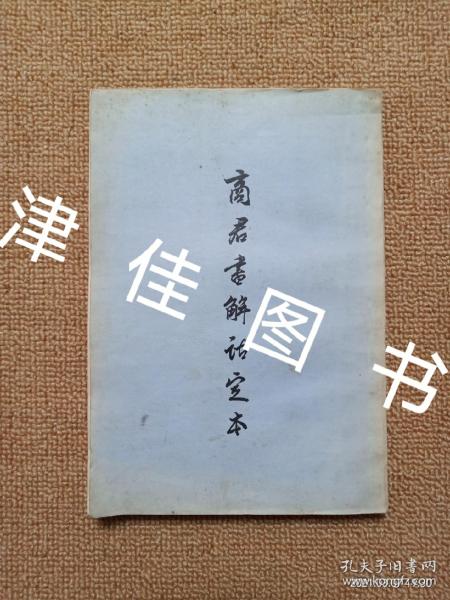 商君書解詁定本
津佳图书
孔夫子旧书网
www.kongfz.com